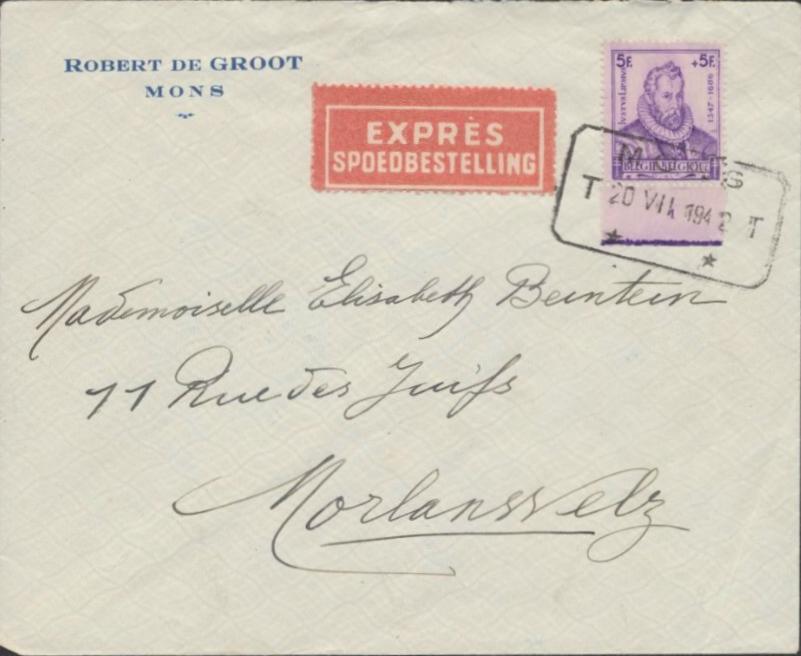 ROBERT DE GROOT
MONS
EXPRÈS
SPOEDBESTELLING
5F. +5F.
1547-1606
BELGIQUE
M S
T 20 VII 1942 T
Mademoiselle Elisabeth Beintein
11 Rue des Juifs
Morlanwelz